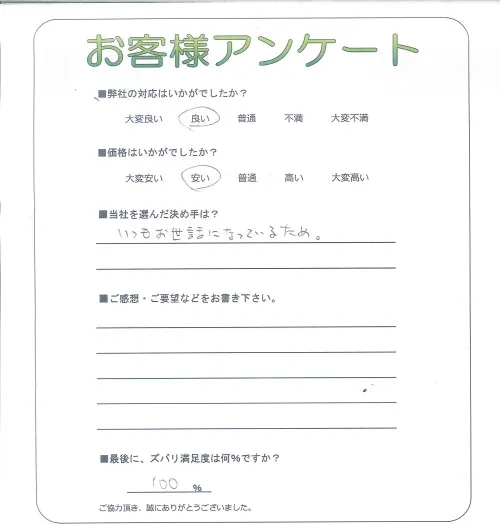 お客様アンケート
■弊社の対応はいかがでしたか？
大変良い 良い 普通 不満 大変不満
■価格はいかがでしたか？
大変安い 安い 普通 高い 大変高い
■当社を選んだ決め手は？
いつもお世話になっているため。
■ご感想・ご要望などをお書き下さい。
■最後に、ズバリ満足度は何%ですか？
100 %
ご協力頂き、誠にありがとうございました。